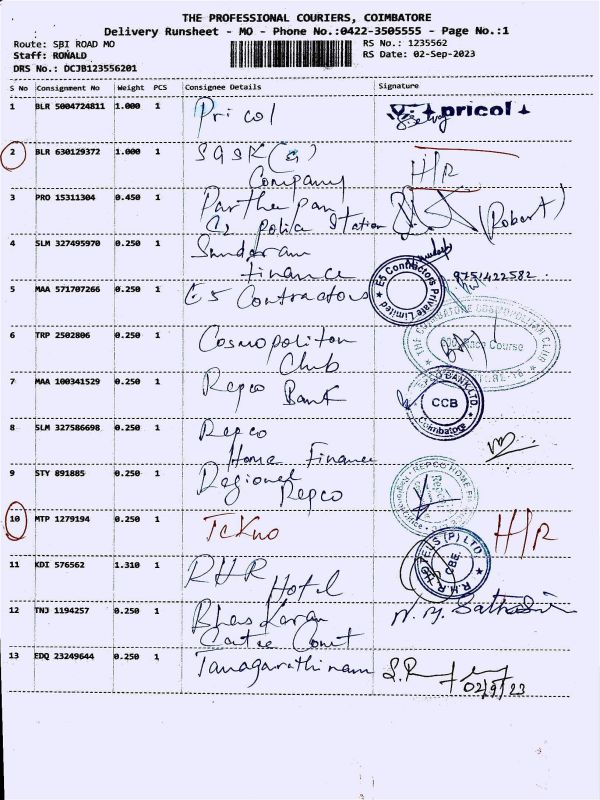 THE PROFESSIONAL COURIERS, COIMBATORE
Delivery Runsheet - MO - Phone No.:0422-3505555 - Page No.:1
Route: SBI ROAD MO
RS No.: 1235562
Staff: RONALD
RS Date: 02-Sep-2023
DRS No.: DCJB123556201
S No Consignment No Weight PCS Consignee Details Signature
1 BLR 5004724811 1.000 1 Pricol pricol
2 BLR 630129372 1.000 1 SGSK (G) H/R
Company
3 PRO 15311304 0.450 1 Parthepan (Robert)
C2 Police Station
4 SLM 327495970 0.250 1 Sundaram
Finance 9751422582
5 MAA 571707266 0.250 1 E5 Contractors E5 Contractors Private Limited
6 TRP 2502806 0.250 1 Cosmopoliton THE COIMBATORE COSMOPOLITAN CLUB
Club Race Course
7 MAA 100341529 0.250 1 Repco REPCO BANK LTD.
Bank CCB
Coimbatore
8 SLM 327586698 0.250 1 Repco
Home Finance
9 STY 891885 0.250 1 Regional REPCO HOME
Repco
10 MTP 1279194 0.250 1 Tekno H/R
11 KDI 576562 1.310 1 RHR R.H.R. HOTELS (P) LTD
Hotel CBE.
12 TNJ 1194257 0.250 1 Bhaskaran
Court
13 EDQ 23249644 0.250 1 Tanagarathinam
02/9/23